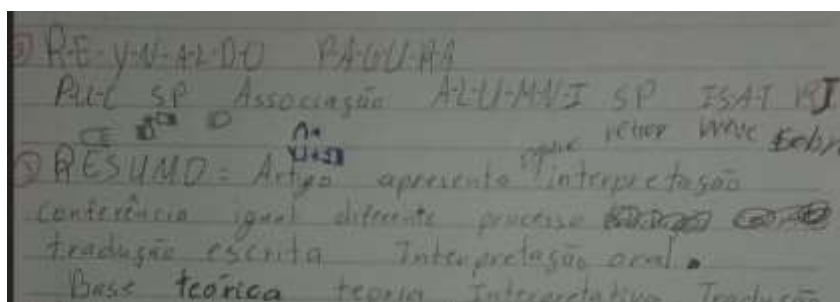 ② R-E-Y-N-A-L-D-O PAGURA
PUC SP Associação A-L-U-M-N-I SP ISAT RJ
③ RESUMO: Artigo apresenta interpretação
conferência igual diferente processo
tradução escrita Interpretação oral.
Base teórica teoria Interpretativa Tradução